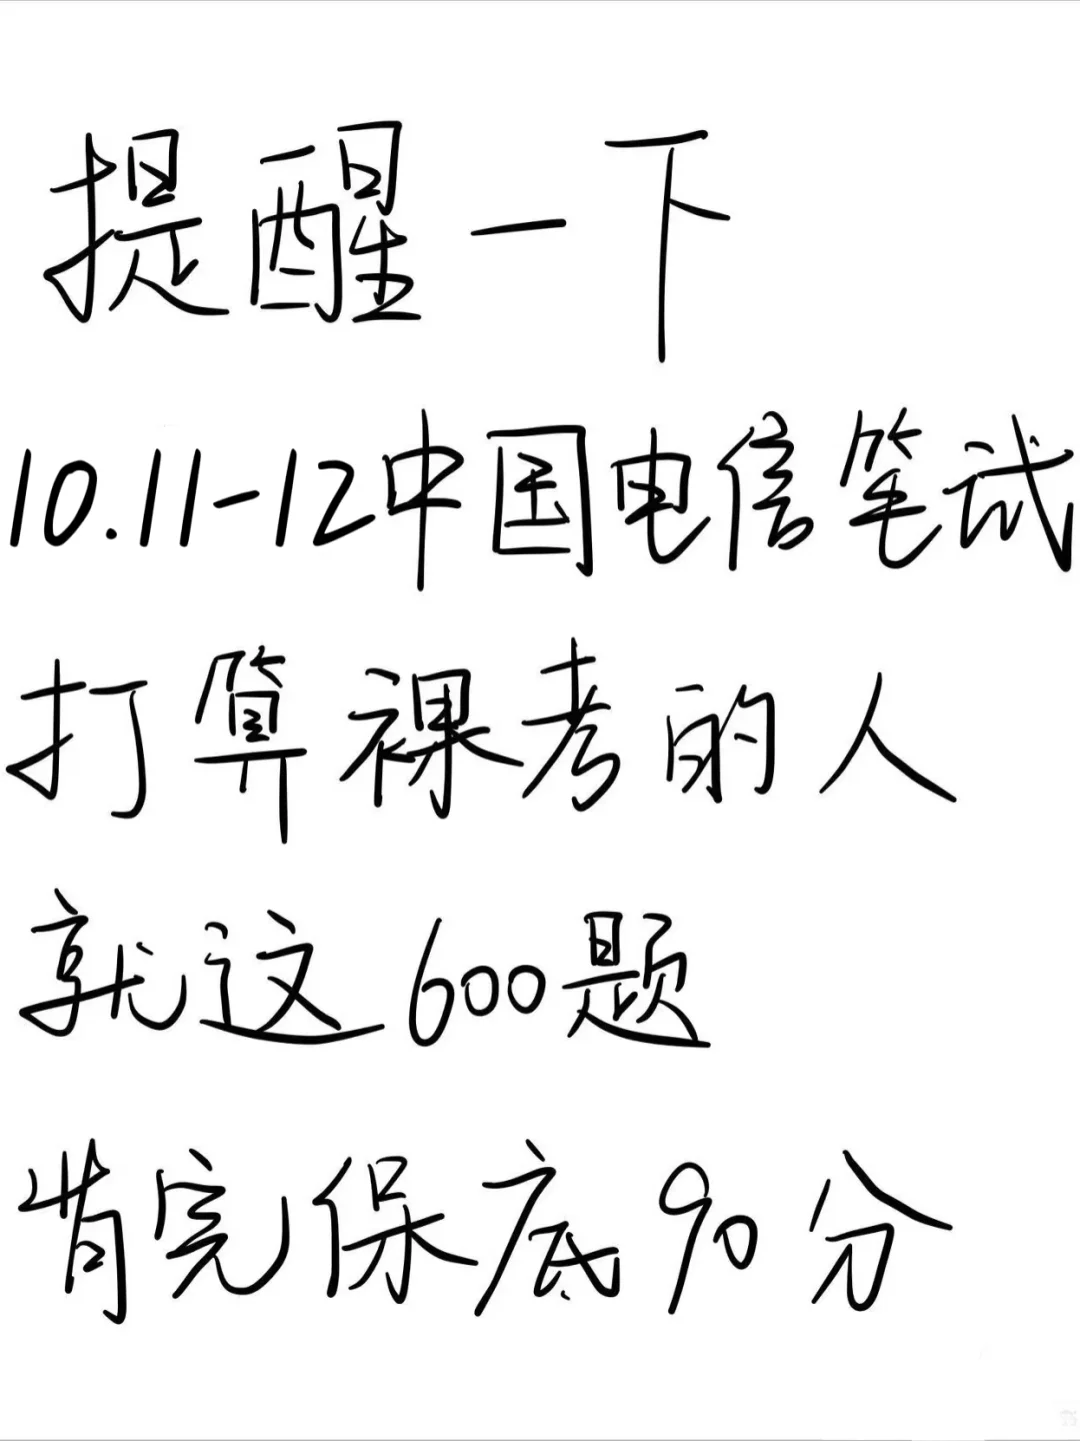 提醒一下
10.11-12中国电信笔试
打算裸考的人
就这600题
背完保底90分